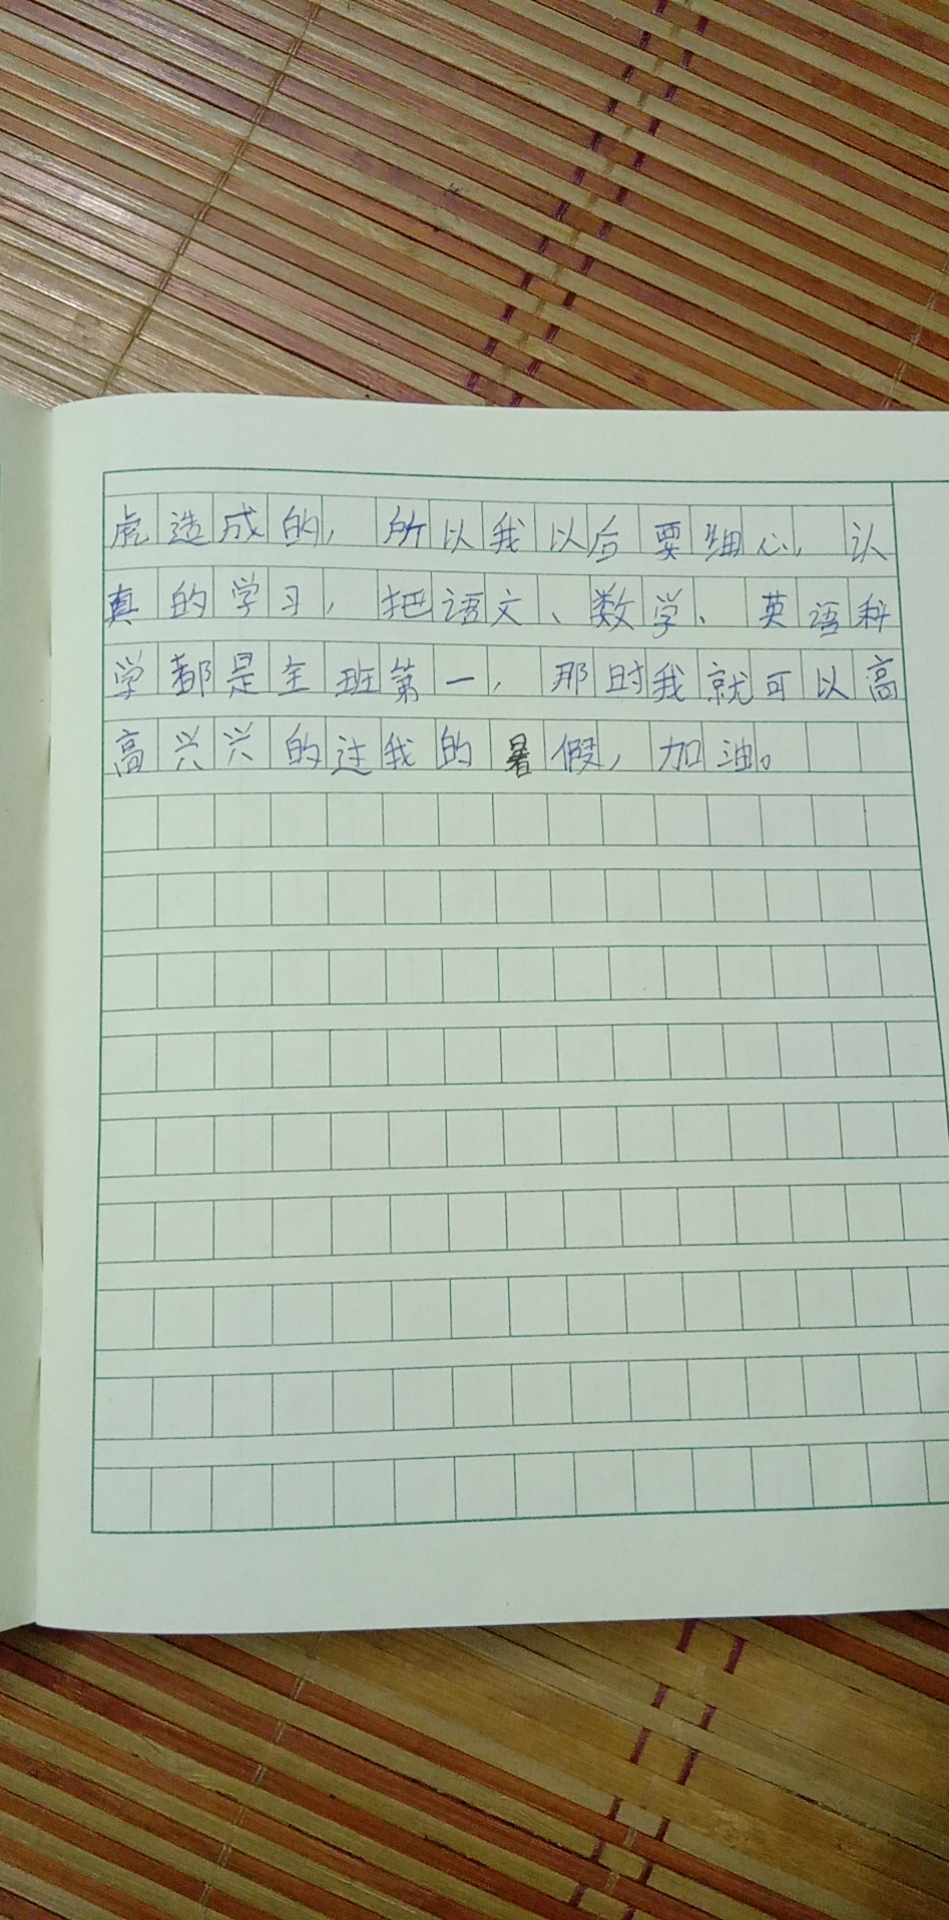 虎造成的，所以我以后要细心，认
真的学习，把语文、数学、英语科
学都是全班第一，那时我就可以高
高兴兴的过我的暑假，加油。